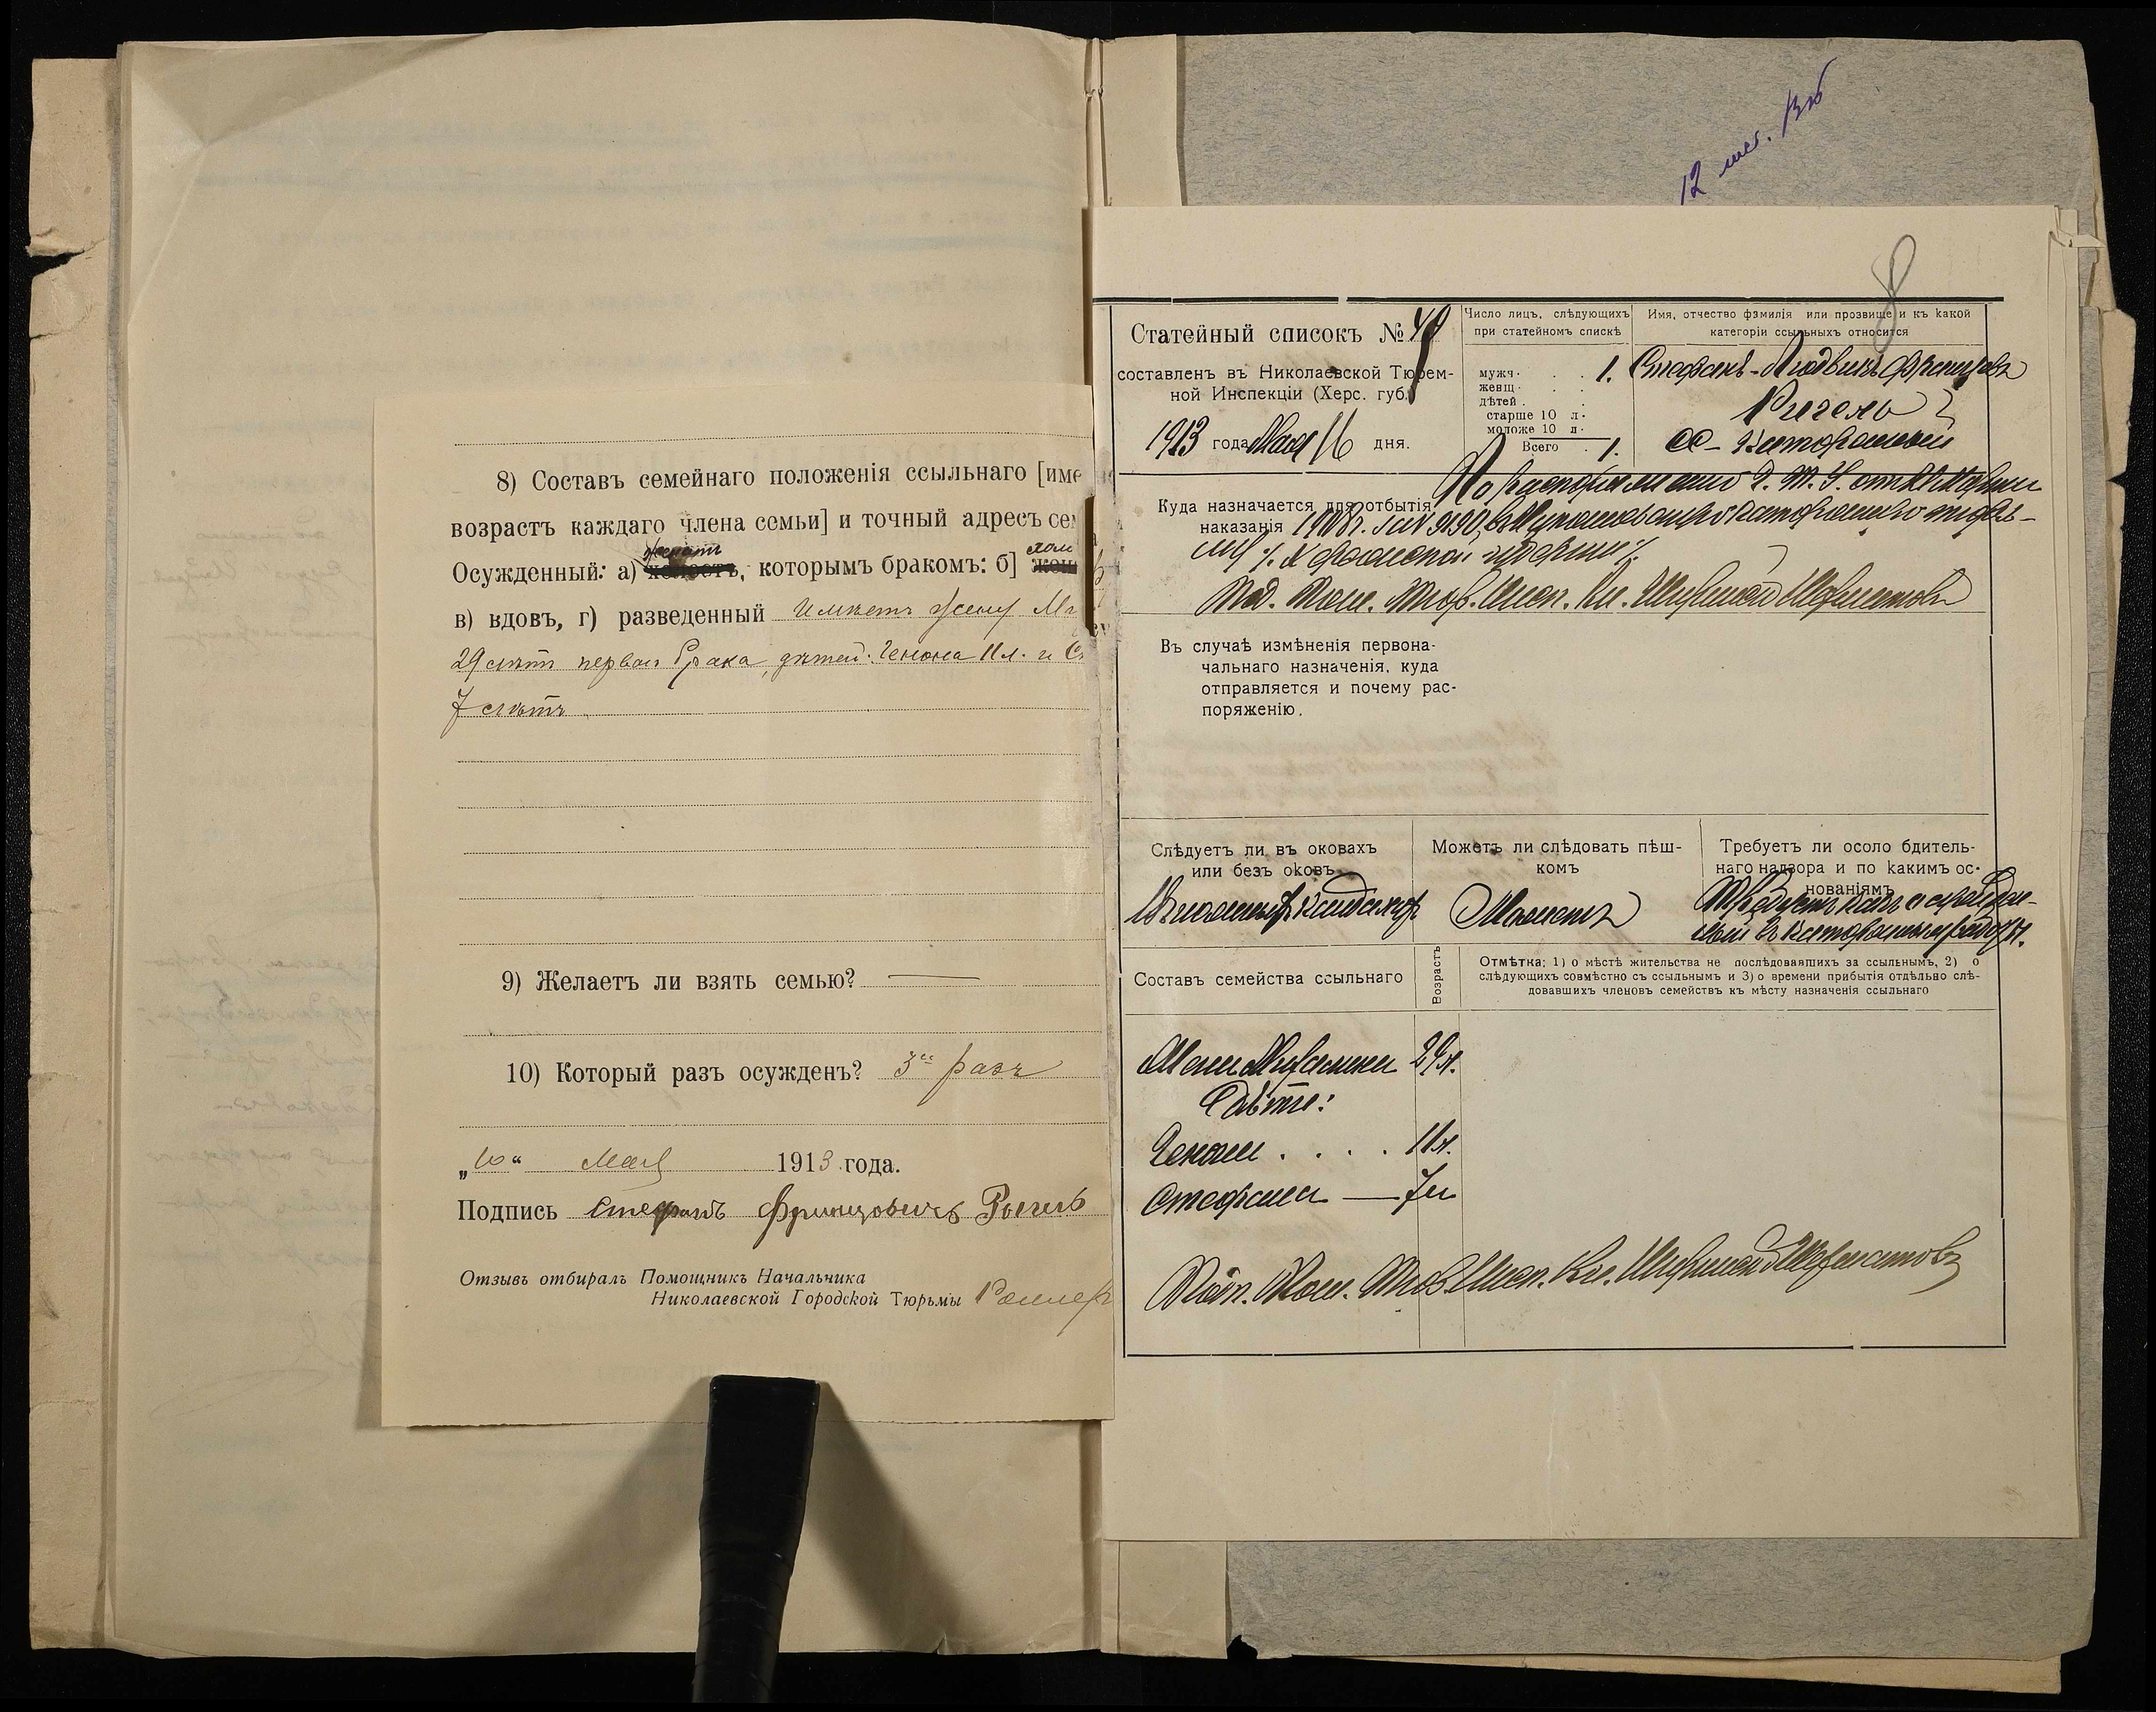 8) Составъ семейнаго положенія ссыльнаго [име
возрастъ каждаго члена семьи] и точный адресъ сем
женатъ
Осужденный: а) холостъ, которымъ бракомъ: б]
в) вдовъ, г) разведенный имѣетъ жену
29 лѣтъ перваго брака, дѣтей: Генона 11 л. и С
7 лѣтъ
9) Желаетъ ли взять семью? —
10) Который разъ осужденъ? 3й разъ
„10“ Мая 1913 года.
Подпись Стефанъ Францовичъ Ригель
Отзывъ отбиралъ Помощникъ Начальника
Николаевской Городской Тюрьмы
12 1316
8
Статейный списокъ № 49
составленъ въ Николаевской Тюрем-
ной Инспекціи (Херс. губ.)
1913 года Мая 16 дня.
Число лицъ, слѣдующихъ
при статейномъ спискѣ
мужч. . . 1.
женщ. . .
дѣтей . .
старше 10 л.
моложе 10 л.
Всего . 1.
Имя, отчество фамилія или прозвище и къ какой
категоріи ссыльныхъ относится
Стефанъ-Людвикъ Францовъ
Ригель
сс-каторжный
Куда назначается для отбытія
наказанія
По распоряженію Г. Т. У. отъ
9190, въ каторжную тюрь-
му /. Херсонской губерніи /.
Под. Пом. Тюр. Инсп. Кн. Ширинскій Шихматовъ
Въ случаѣ измѣненія первона-
чальнаго назначенія, куда
отправляется и почему рас-
поряженію.
Слѣдуетъ ли въ оковахъ
или безъ оковъ
Въ ножныхъ кандалахъ
Можетъ ли слѣдовать пѣш-
комъ
Можетъ
Требуетъ ли особо бдитель-
наго надзора и по какимъ ос-
нованіямъ
Требуетъ какъ осужден-
ный въ каторжныя работы.
Составъ семейства ссыльнаго
Возрастъ
Отмѣтка: 1) о мѣстѣ жительства не послѣдовавшихъ за ссыльнымъ, 2) о
слѣдующихъ совмѣстно съ ссыльнымъ и 3) о времени прибытія отдѣльно слѣ-
довавшихъ членовъ семействъ къ мѣсту назначенія ссыльнаго
29 л.
Дѣти:
Генона . . . . 11 л.
Стефанія — 7 л
Подп. Пом. Тюр. Инсп. Кн. Ширинскій Шихматовъ